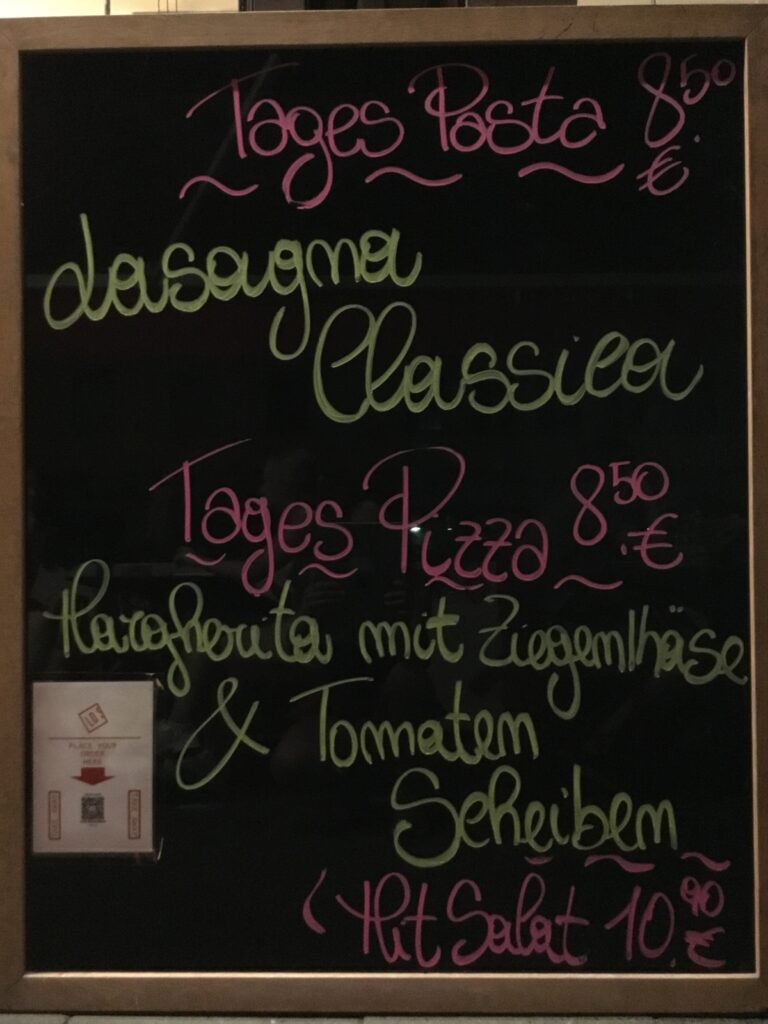 Tages Pasta 8.50 €
Lasagna
Classica
Tages Pizza 8.50 €
Margherita mit Ziegenkäse
& Tomaten
Scheiben
PLACE YOUR
ORDER
HERE
(Mit Salat 10.90 €